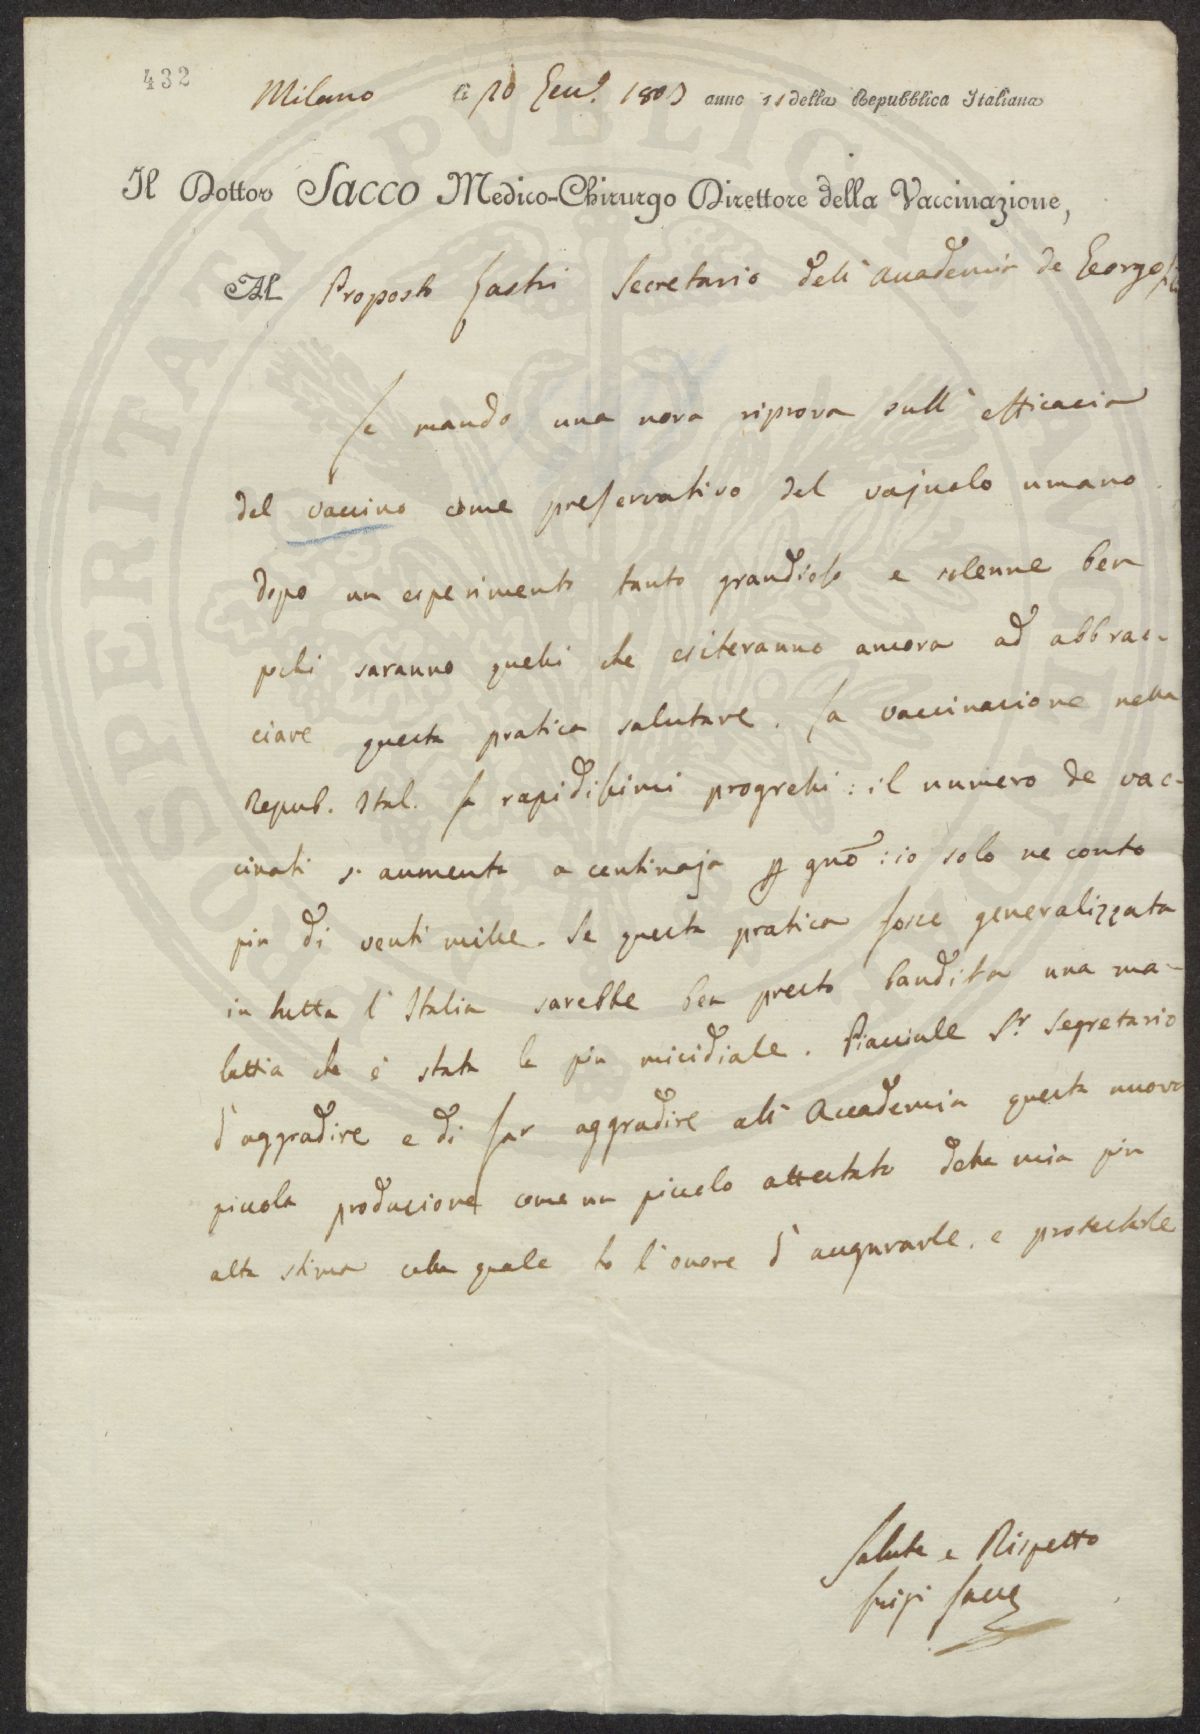 432
Milano li 20 Gen.o 1803 anno 11 della Repubblica Italiana
Il Dottor Sacco Medico-Chirurgo Direttore della Vaccinazione,
Al Proposto Lastri Secretario dell' Accademia de Georgofili
Le mando una nova riprova sull' efficacia
del vaccino come preservativo del vajuolo umano.
dopo un esperimento tanto grandioso e solenne ben
pochi saranno quelli che esiteranno ancora ad abbrac-
ciare questa pratica salutare. La vaccinazione nella
Repub. Ital. fa rapidissimi progressi: il numero de vac-
cinati s' aumenta a centinaja per gno: io solo ne conto
piu di venti mille. Se questa pratica fosse generalizzata
in tutta l' Italia sarebbe ben presto bandita una ma-
lattia che è stata la piu micidiale. Piacciale Sr. Segretario
d'aggradire e di far aggradire all' Accademia questa nuova
piccola produzione come un piccolo attestato della mia piu
alta stima colla quale ho l' onore d' augurarle, e protestarle
Salute e Rispetto
Luigi Sacco
PROSPERITATI PUBLICAE AUGENDAE